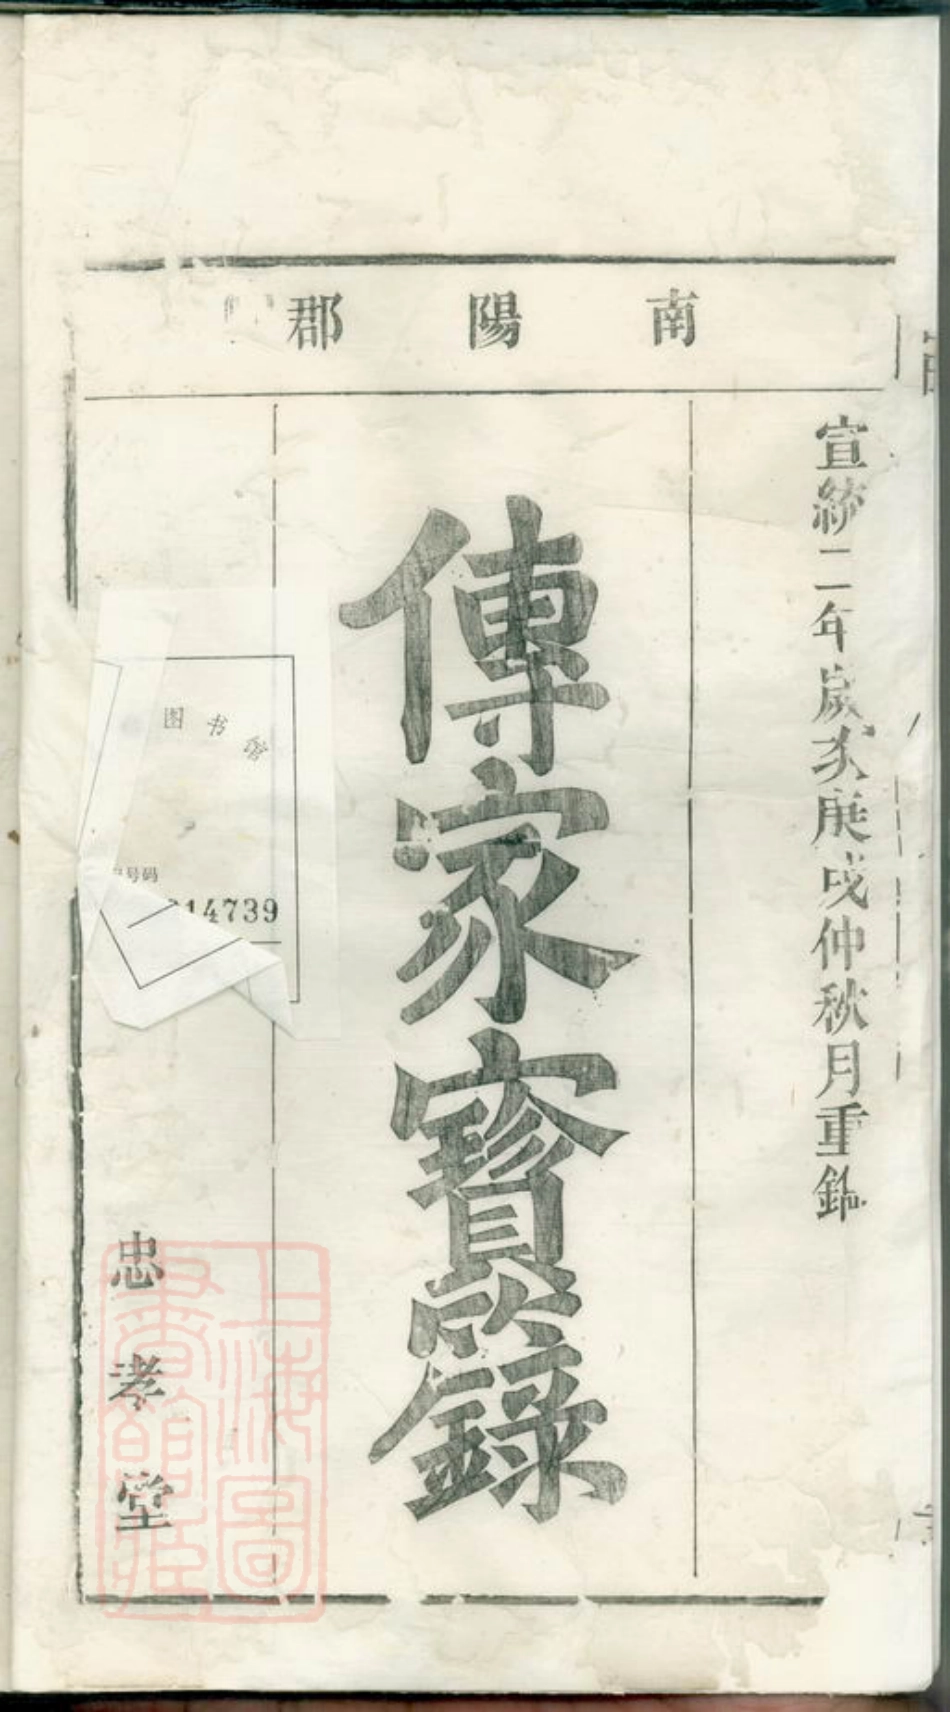 南陽郡
宣統二年歲次庚戌仲秋月重鐫
傳家寶錄
忠孝堂
图书馆
号码
14739
上海圖書館藏